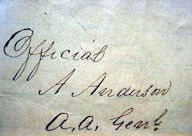 Official
A Anderson
A.A. Genl.